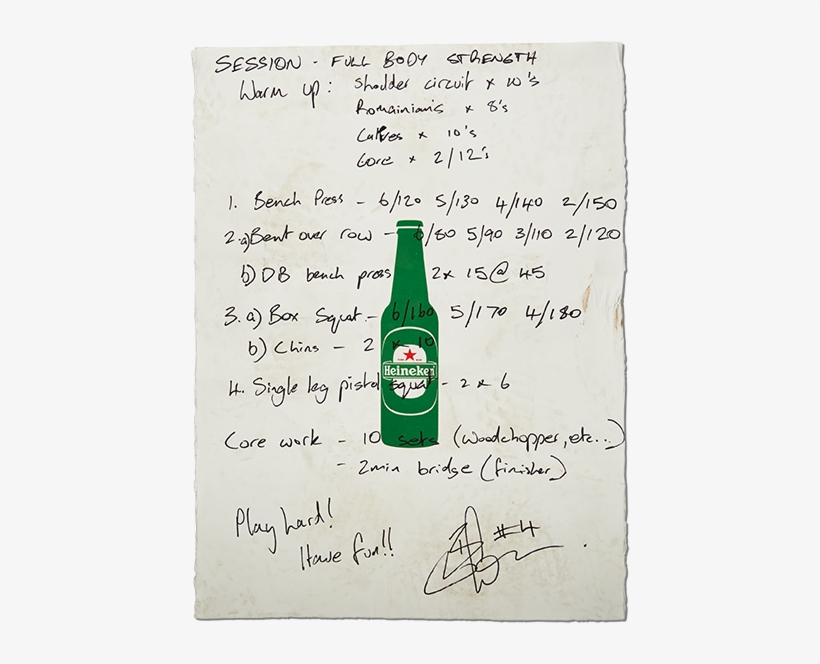 SESSION - FULL BODY STRENGTH
Warm up : Shoulder circuit x 10's
Romainian's x 8's
Calves x 10's
Core x 2/12's
1. Bench Press - 6/120 5/130 4/140 2/150
2. a) Bent over row - 6/80 5/90 3/110 2/120
b) DB bench press 2x 15@ 45
3. a) Box Squat - 6/160 5/170 4/180
b) Chins - 2 x 10
Heineken
4. Single leg pistol squat - 2 x 6
Core work - 10 sets (woodchopper, etc...)
- 2min bridge (finisher)
Play hard!
Have fun!!
#4